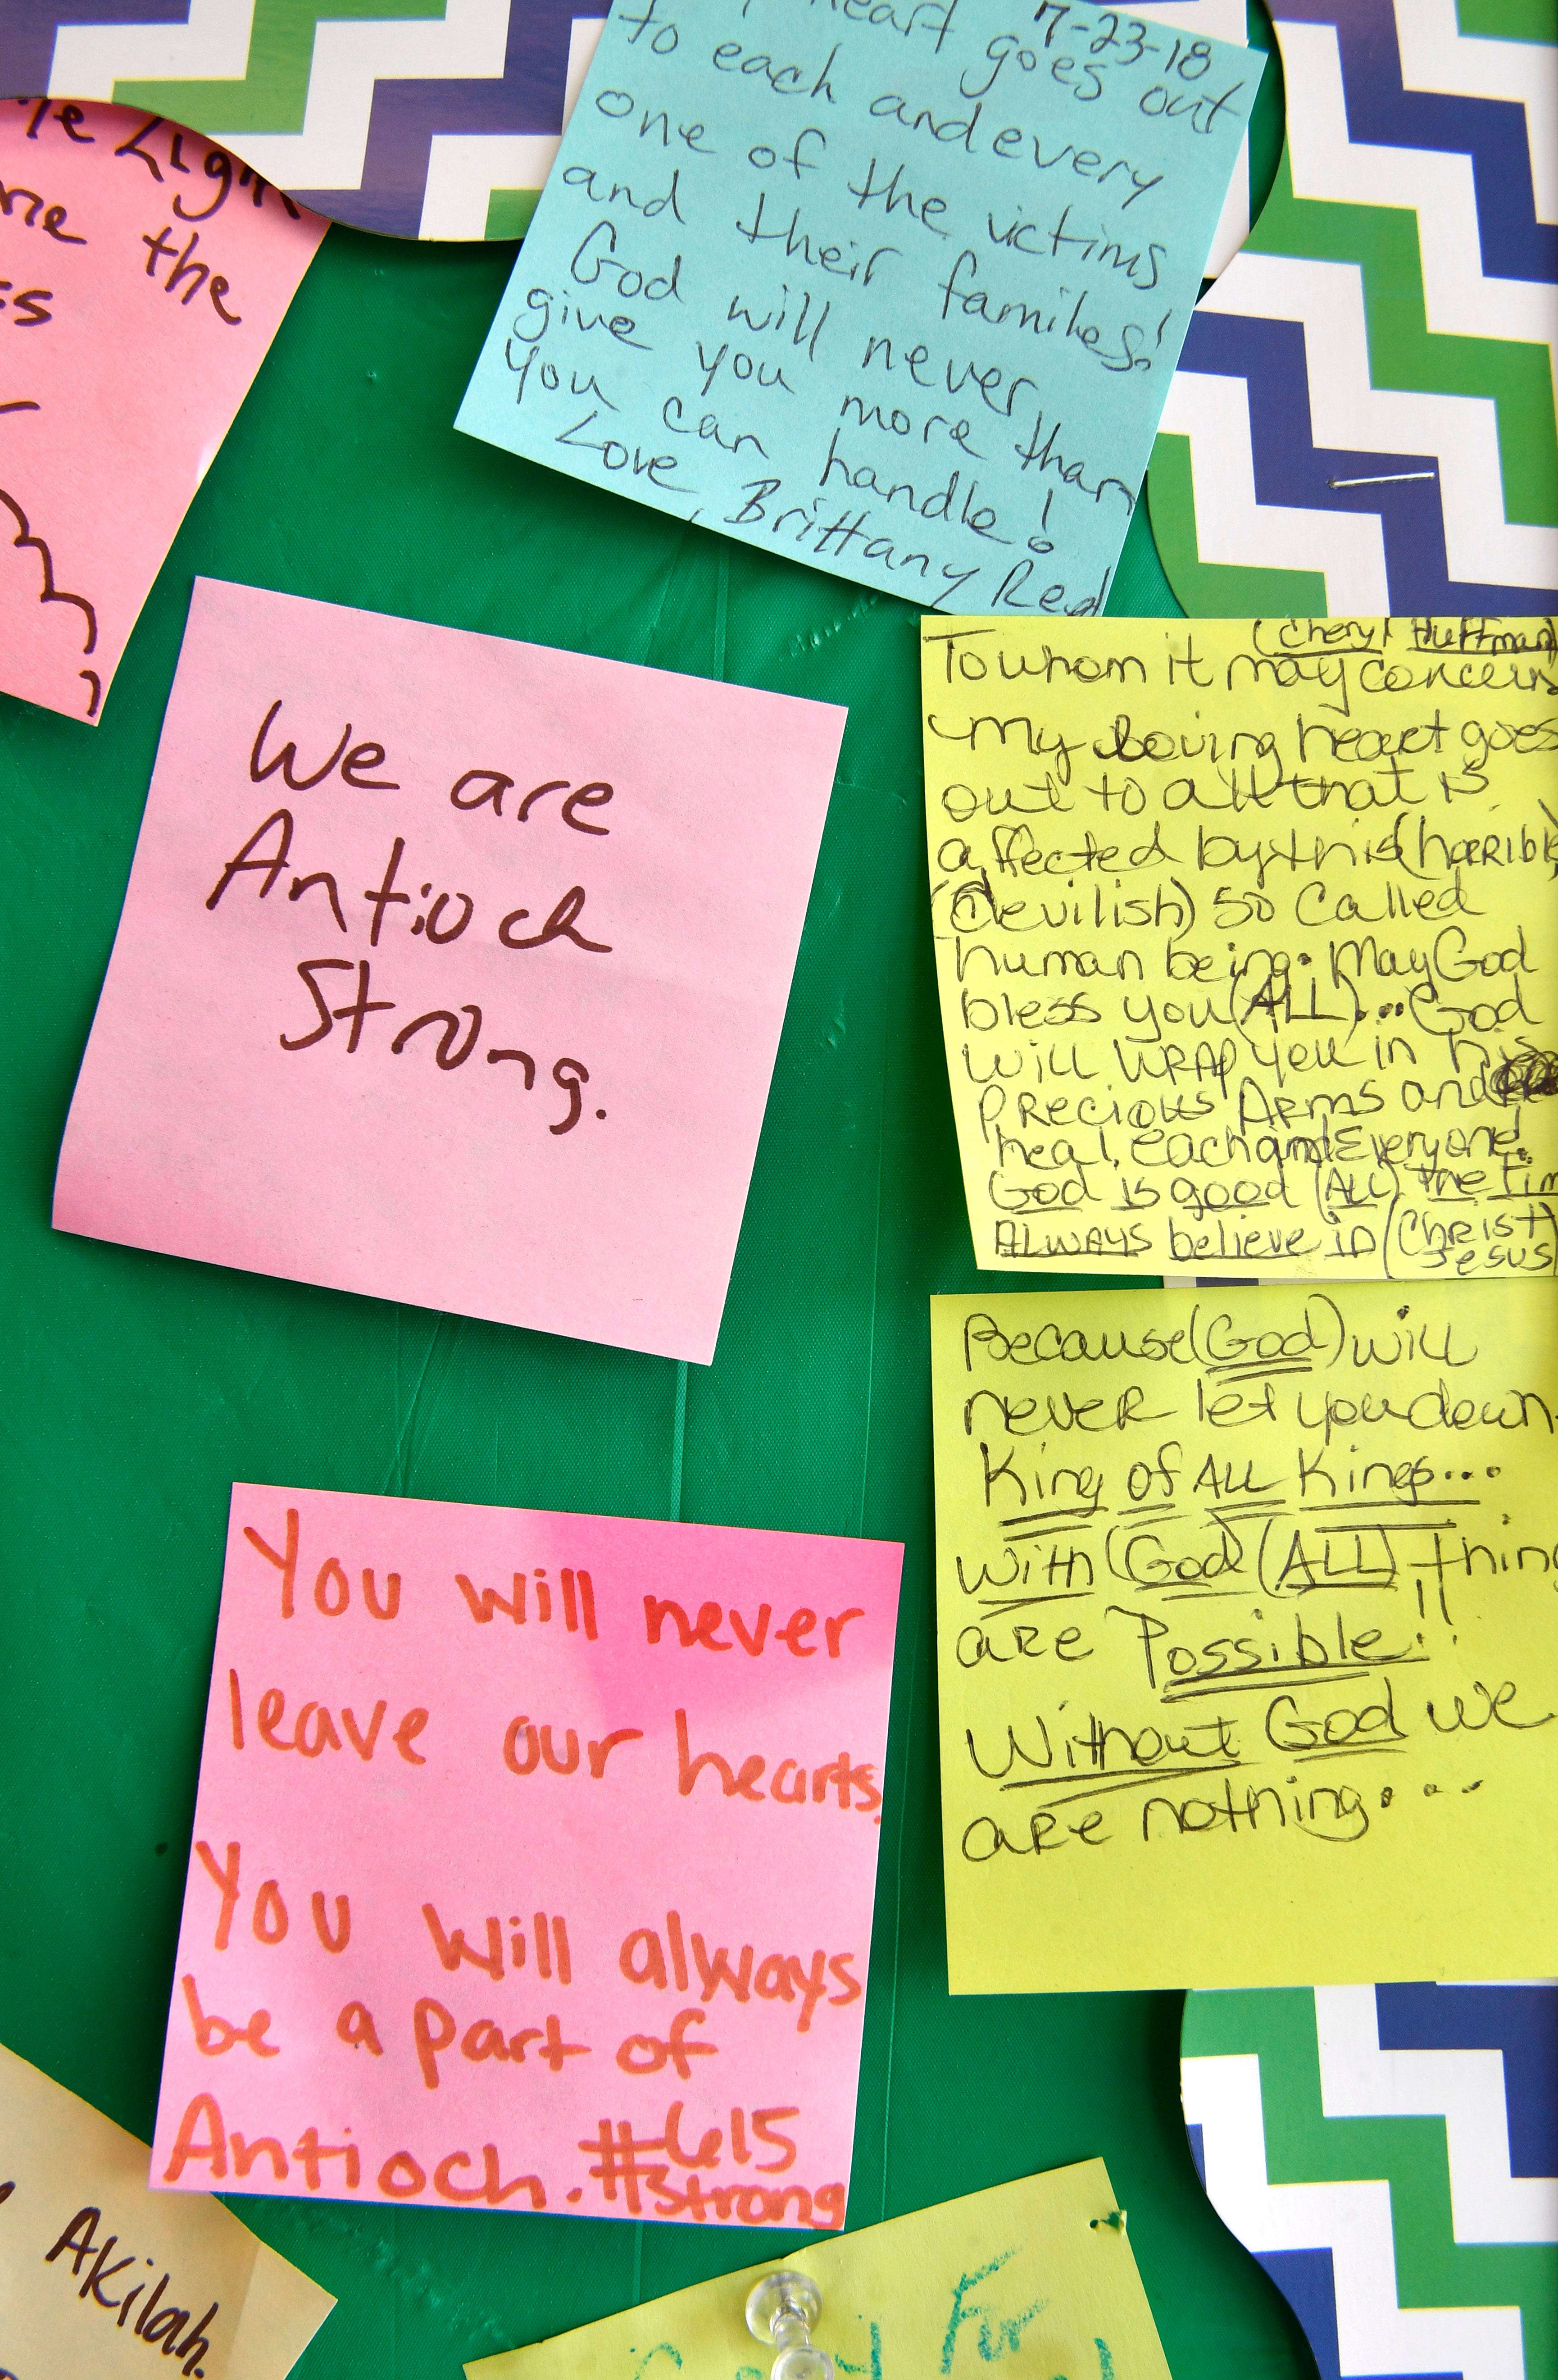 7-23-18
heart goes out
to each and every
one of the victims
and their families!
God will never
give you more than
you can handle!
Love, Brittany Red
the
We are
Antioch
Strong.
(Cheryl Huffman)
To whom it may concern
My loving heart goes
out to all that is
affected by this (horrible)
(devilish) so called
human being. May God
bless you (ALL)... God
will wrap you in his
precious Arms and
heal, each and Everyone.
God is good (ALL) the Tim
ALWAYS believe in (Christ
Jesus)
Because (God) will
never let you down.
King of ALL Kings...
With (God) (ALL) thing
are Possible!!
Without God we
are nothing....
You will never
leave our hearts.
You will always
be a part of
Antioch. #615
strong
Akilah.
For